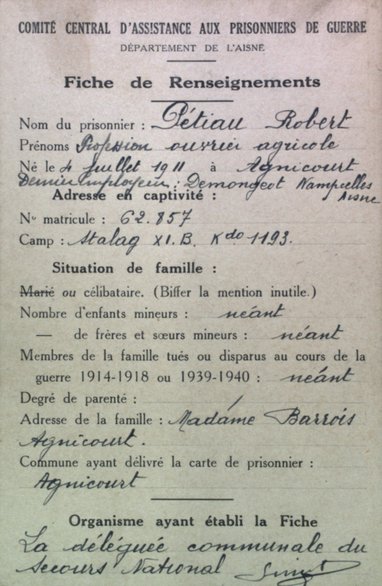 COMITÉ CENTRAL D'ASSISTANCE AUX PRISONNIERS DE GUERRE
DÉPARTEMENT DE L'AISNE
Fiche de Renseignements
Nom du prisonnier : Pétiau Robert
Prénoms Profession ouvrier agricole
Né le 4 Juillet 1911 à Agnicourt
Dernier employeur : Demongeot Wampcelles Aisne
Adresse en captivité :
N° matricule : 62.857
Camp : Stalag XI.B. Kdo 1193.
Situation de famille :
Marié ou célibataire. (Biffer la mention inutile.)
Nombre d'enfants mineurs : néant
— de frères et sœurs mineurs : néant
Membres de la famille tués ou disparus au cours de la
guerre 1914-1918 ou 1939-1940 : néant
Degré de parenté : /
Adresse de la famille : Madame Barrois
Agnicourt.
Commune ayant délivré la carte de prisonnier :
Agnicourt
Organisme ayant établi la Fiche
La déléguée communale du
Secours National